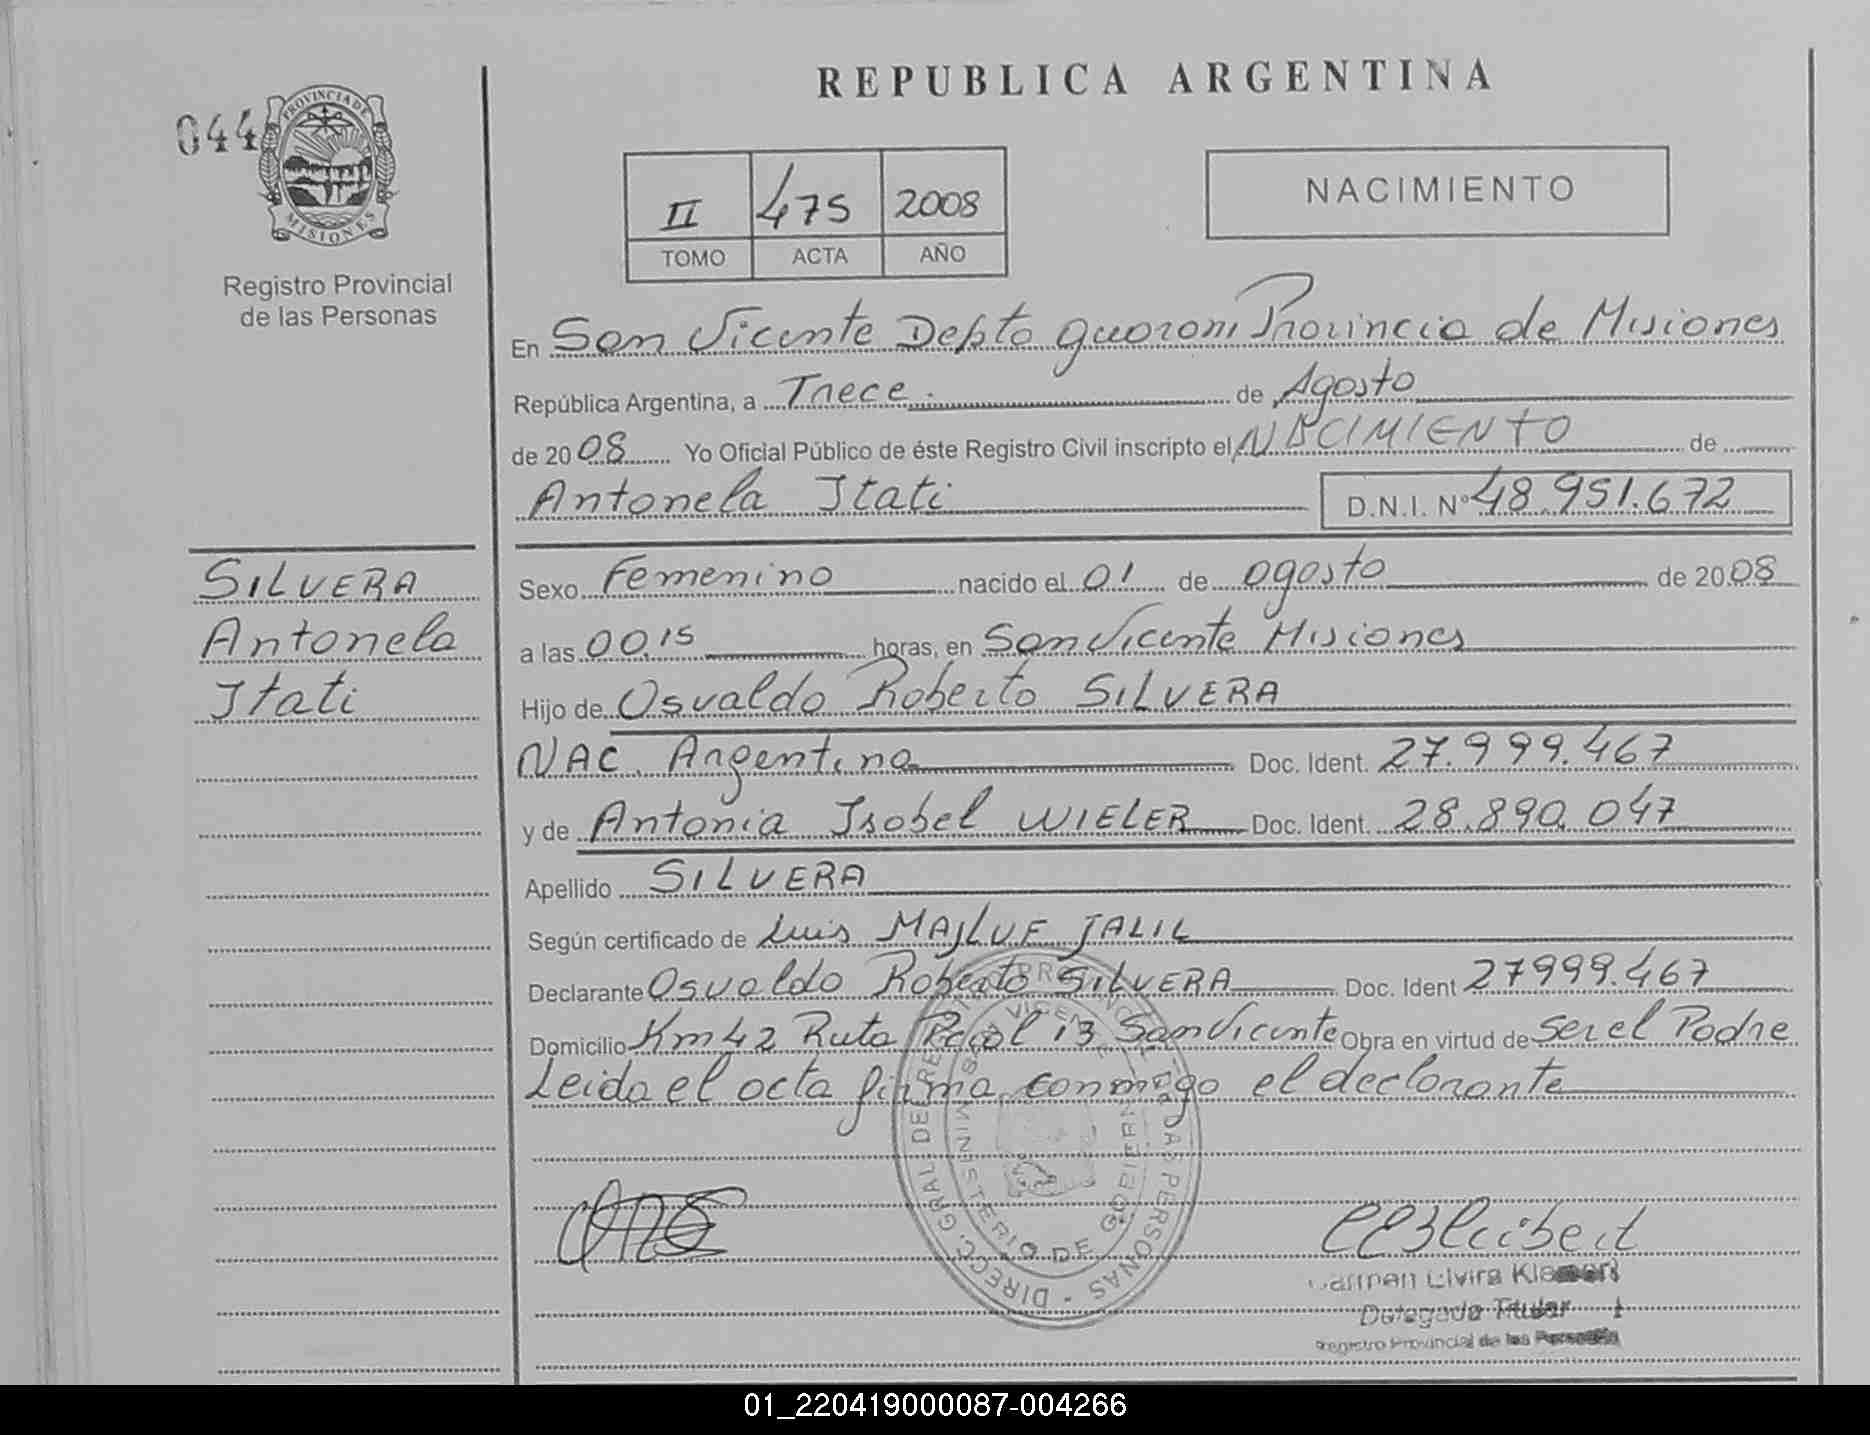 REPUBLICA ARGENTINA
044
PROVINCIA DE
MISIONES
Registro Provincial
de las Personas
II 475 2008
TOMO ACTA AÑO
NACIMIENTO
En San Vicente Depto Guarani Provincia de Misiones
República Argentina, a Trece de Agosto
de 2008 Yo Oficial Público de éste Registro Civil inscripto el NACIMIENTO de
Antonela Itati D.N.I. Nº 48.951.672
SILVERA
Antonela
Itati
Sexo Femenino nacido el 01 de agosto de 2008
a las 00.15 horas, en San Vicente Misiones
Hijo de Osvaldo Roberto SILVERA
NAC. Argentina Doc. Ident. 27.999.467
y de Antonia Isabel WIELER Doc. Ident. 28.890.047
Apellido SILVERA
Según certificado de Luis MAJLUF JALIL
Declarante Osvaldo Roberto SILVERA Doc. Ident 27999.467
Domicilio Km 42 Ruta Pcial 13 San Vicente Obra en virtud de Ser el Padre
Leida el acta firma conmigo el declarante
DIRECC. GRAL. DE PERSONAS
MINISTERIO DE GOBIERNO
Carmen Elvira
Delegada Titular
Registro Provincial de las Personas
01_220419000087-004266